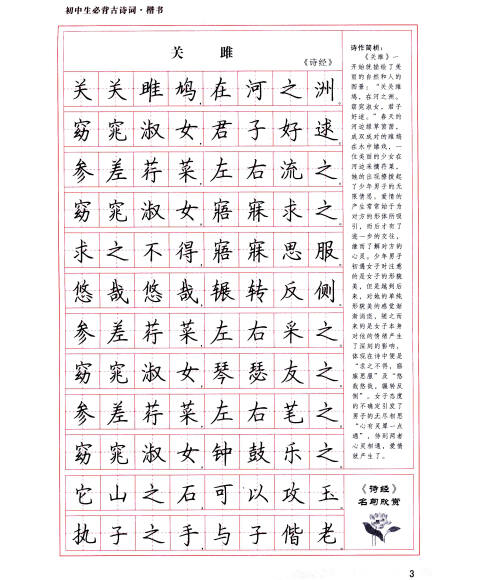 初中生必背古诗词·楷书
关 雎
《诗经》
关关雎鸠,在河之洲。
窈窕淑女,君子好逑。
参差荇菜,左右流之。
窈窕淑女,寤寐求之。
求之不得,寤寐思服。
悠哉悠哉,辗转反侧。
参差荇菜,左右采之。
窈窕淑女,琴瑟友之。
参差荇菜,左右笔之。
窈窕淑女,钟鼓乐之。
它山之石可以攻玉
执子之手与子偕老
诗作简析:
《关雎》一
开始就描绘了美
丽的自然和人的
图景:“关关雎
鸠,在河之洲。
窈窕淑女,君子
好逑。”春天的
河边绿草茵茵,
成双成对的雎鸠
在水中嬉戏,一
位美丽的少女在
河边采摘荇菜,
她的出现撩拨起
了少年男子的无
限情思。爱情的
产生常常始于为
对方的形体所吸
引,而后才有了
进一步的交往,
继而了解对方的
心灵。少年男子
初遇女子时注意
的是女子的形貌
美,但是越到后
来,对她的单纯
形貌美的感觉渐
渐消逝,随之而
来的是女子本身
对他的情绪产生
了深刻的影响,
体现在诗中便是
“求之不得,寤
寐思服”及“悠
哉悠哉,辗转反
侧”。女子态度
的不确定引发了
男子的无尽相思
“心有灵犀一点
通”,待到两者
心灵相通,爱情
就产生了。
《诗经》
名句欣赏
3